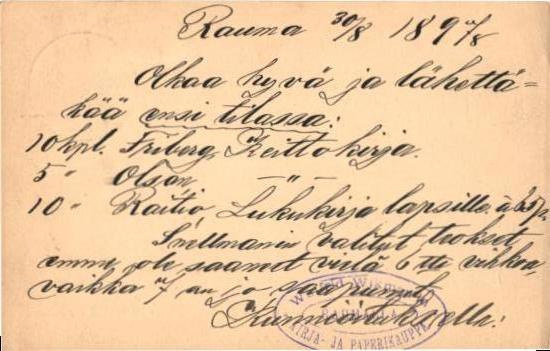 Rauma 30/8 1897
Olkaa hyvä ja lähettä-
kää ensi tilassa:
10 kpl. Friberg, Keittokirja.
5 " Olson, — " —
10 " Raitio, Lukukirja lapsille à
Snellmanin valitut teokset
emme ole saaneet vielä 6 tta vihkoa,
vaikka on jo saapunut
Kunnioituksella:
KIRJA- JA PAPERIKAUPPA